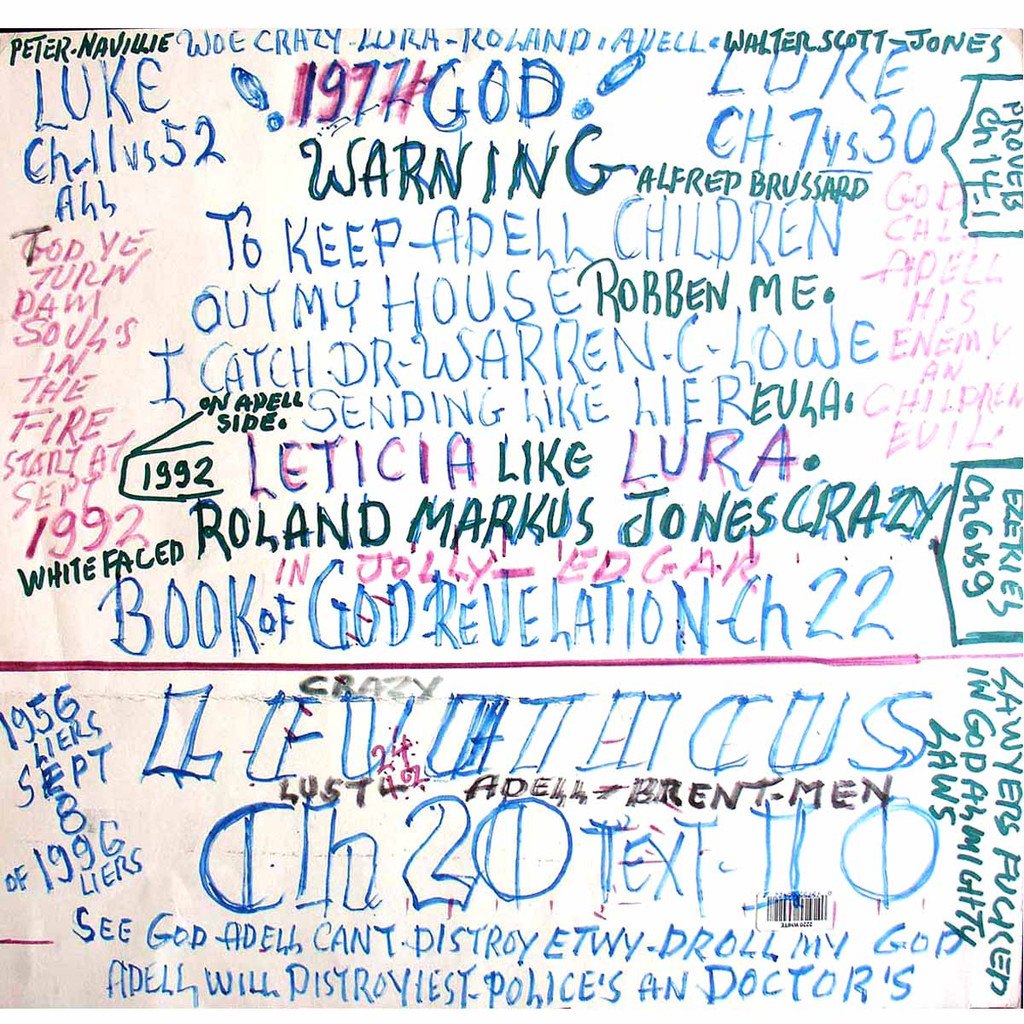 PETER-NAVILLIE WOE CRAZY-LURA-ROLAND, ADELL. WALTER SCOTT-JONES
LUKE
Ch-11 vs 52
ALL
1977# GOD
WARNING
LUKE
CH. 7 vs 30
ALFRED BRUSSARD
PROVEB
Ch 14:1
TO KEEP-ADELL CHILDREN
OUT MY HOUSE ROBBEN ME.
I CATCH DR-WARREN-C-LOWE
SENDING LIKE LIER EULA.
ON ADELL
SIDE.
1992
LETICIA LIKE LURA.
ROLAND MARKUS JONES CRAZY
WHITE FACED
IN JOLLY-EDGAR
BOOK OF GOD REVELATION-Ch 22
GOD YE
TURN
DAM
SOUL'S
IN
THE
FIRE
START AT
SEPT
1992
GOD
CALL
ADELL
HIS
ENEMY
AN
CHILDREN
EVIL.
EZEKIEL
Ch 6 vs 9
CRAZY
LEVITICUS
1956
LIERS
SEPT
8
OF 1996
LIERS
ADELL-BRENT-MEN
Ch 20 TEXT-110
2220 WHITE
LAWYERS FUCKEED
IN GOD AHMIGHTY
LAWS
SEE GOD ADELL CANT-DISTROY ETWY-DROLL MY GOD
ADELL WILL DISTROY IEST-POLICE'S AN DOCTOR'S